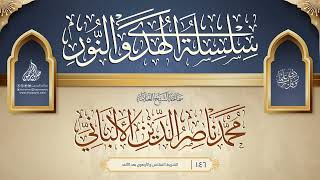 سلسلة الهدى والنور
سماحة الشيخ العلامة
محمد ناصر الدين الألباني
الشريط السادس والأربعون بعد المائة
١٤٦